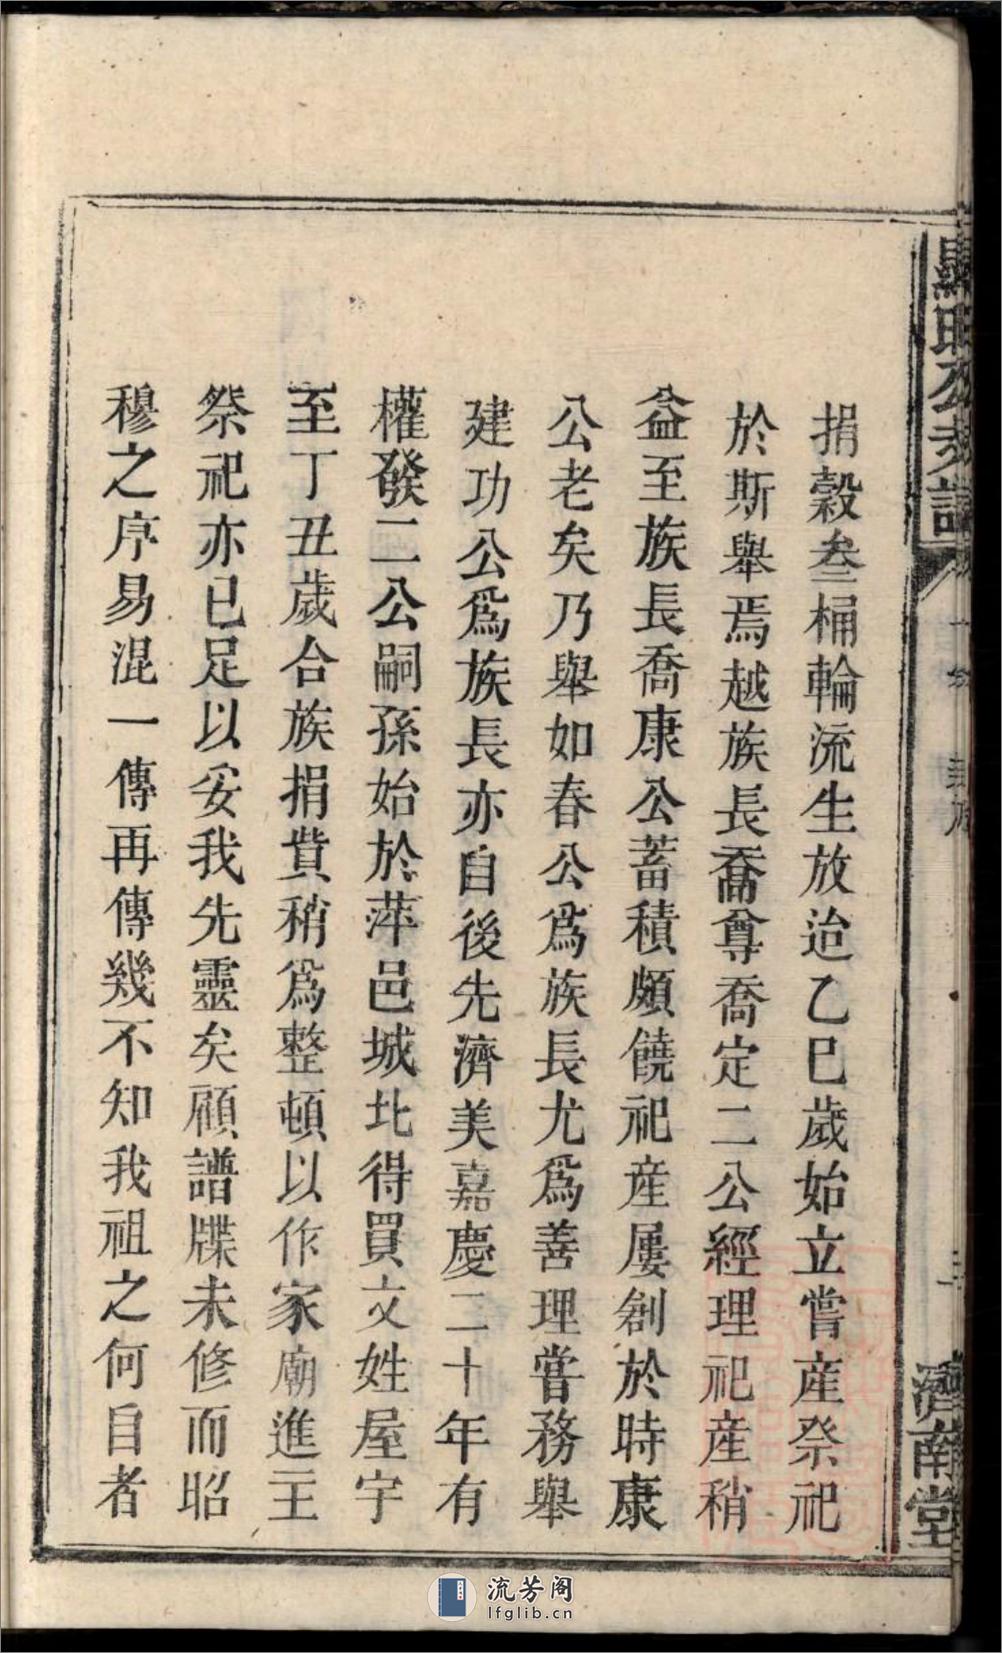 捐穀叁桶輪流生放迨乙巳歲始立嘗產祭祀
於斯舉焉越族長喬尊喬定二公經理祀產稍
益至族長喬康公蓄積頗饒祀產屢創於時康
公老矣乃舉如春公爲族長尤爲善理嘗務舉
建功公爲族長亦自後先濟美嘉慶二十年有
權發二公嗣孫始於萍邑城北得買文姓屋宇
至丁丑歲合族捐貲稍爲整頓以作家廟進主
祭祀亦已足以妥我先靈矣顧譜牒未修而昭
穆之序易混一傳再傳幾不知我祖之何自者
濟南堂
流芳阁
lfglib.cn